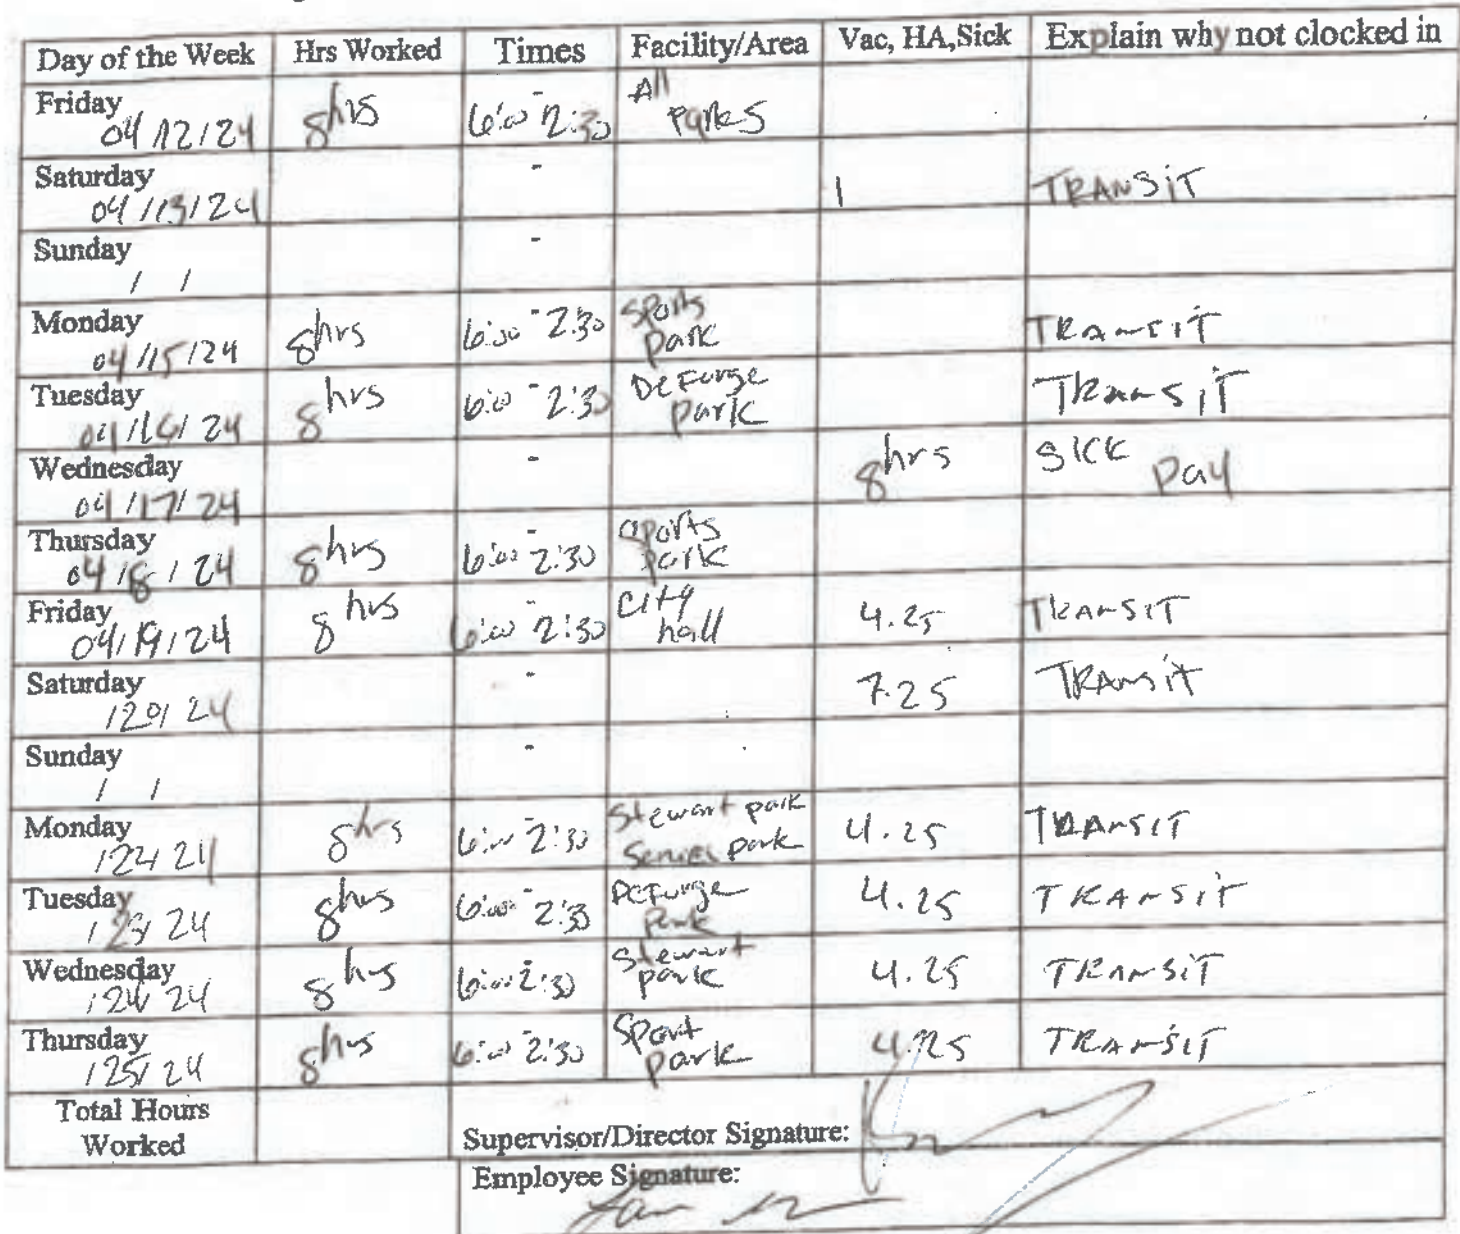 Day of the Week Hrs Worked Times Facility/Area Vac, HA,Sick Explain why not clocked in
Friday 04/12/24 8hrs 6:00-2:30 All Parks
Saturday 04/13/24 - 1 TRANSiT
Sunday / / -
Monday 04/15/24 8hrs 6:00-2:30 Sports Park TRANSiT
Tuesday 04/16/24 8hrs 6:00-2:30 DeForge Park TRANSiT
Wednesday 04/17/24 - 8hrs SICK Pay
Thursday 04/18/24 8hrs 6:00-2:30 Sports Park
Friday 04/19/24 8hrs 6:00-2:30 City hall 4.25 TRANSIT
Saturday /20/24 - 7.25 TRANSit
Sunday / / -
Monday /22/24 8hrs 6:00-2:30 Stewart park park 4.25 TRANSIT
Tuesday /23/24 8hrs 6:00-2:30 DeForge Park 4.25 TRANSiT
Wednesday /24/24 8hrs 6:00-2:30 Stewart park 4.25 TRANSiT
Thursday /25/24 8hrs 6:00-2:30 Sport park 4.25 TRANSiT
Total Hours
Worked
Supervisor/Director Signature:
Employee Signature: